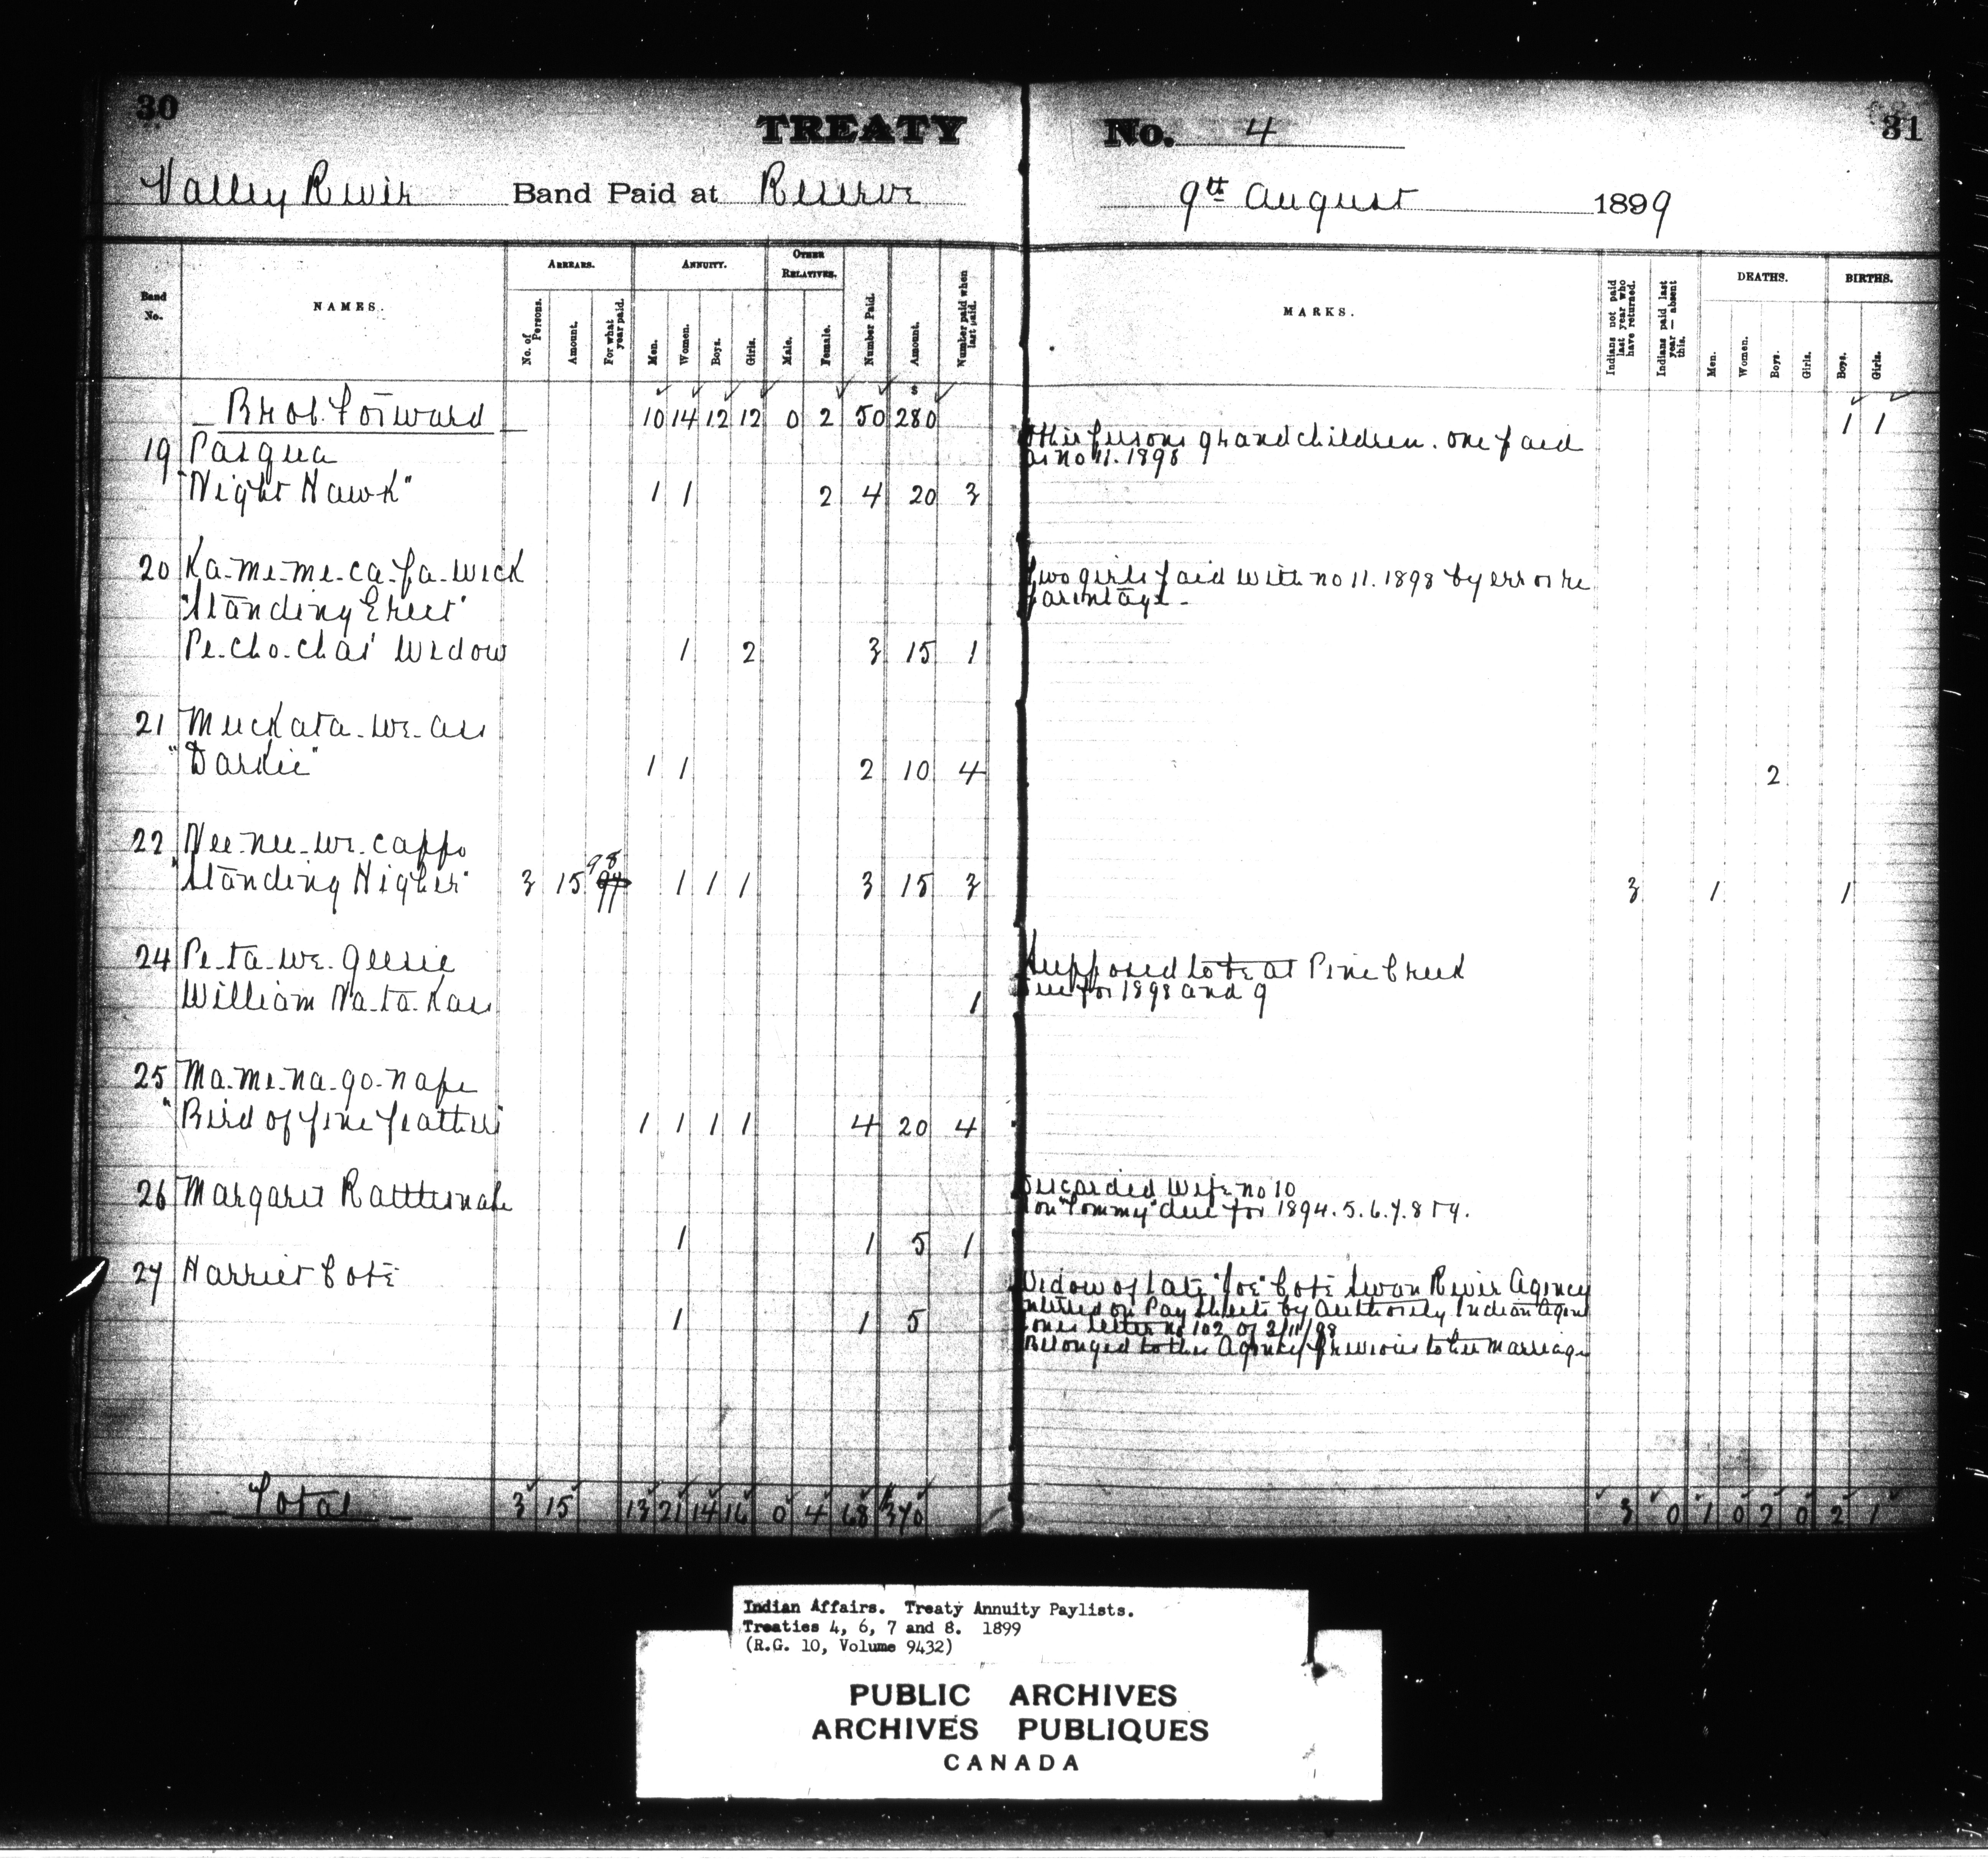 30
TREATY No. 4
31
Valley River Band Paid at Reserve 9th August 1899
Band No.
NAMES.
ARREARS.
No. of Persons.
Amount.
For what year paid.
ANNUITY.
Men.
Women.
Boys.
Girls.
OTHER RELATIVES.
Male.
Female.
Number Paid.
Amount.
Number paid when last paid.
MARKS.
Indians not paid last year who have returned.
Indians paid last year — absent this.
DEATHS.
Men.
Women.
Boys.
Girls.
BIRTHS.
Boys.
Girls.
$
Brot. Forward 10 14 12 12 0 2 50 280 1 1
19 Pasqua Other persons grandchildren. one paid
as no 11. 1898
"Night Hawk" 1 1 2 4 20 3
20 Ka-me-me-ca-pa-wick Two girls paid with no 11. 1898 by error re
"Standing Erect" parentage-
Pe-cho-chas' Widow 1 2 3 15 1
21 Muckata-we-ass
"Darkie" 1 1 2 10 4 2
22 Nee-nee-we-cappo
98
"Standing Higher" 3 15 97 1 1 1 3 15 3 3 1 1
24 Pe-ta-we-geesie Supposed to be at Pine Creek
William Na-ta-kas 1 Due for 1898 and 9
25 Ma-me-na-go-nape
"Bird of fine feathers" 1 1 1 1 4 20 4
26 Margaret Rattlesnake Discarded Wife no 10
Son "Tommy" due for 1894.5.6.7.8 & 9.
1 1 5 1
27 Harriet Coté
Widow of late "Joe" Coté Swan River Agency
1 1 5 entered on Pay Sheets by authority Indian Agent
Jones letter no 102 of 2/11/98
Belonged to this Agency previous to her marriage
Total 3 15 13 21 14 16 0 4 68 340 3 0 1 0 2 0 2 1
Indian Affairs. Treaty Annuity Paylists.
Treaties 4, 6, 7 and 8. 1899
(R.G. 10, Volume 9432)
PUBLIC ARCHIVES
ARCHIVES PUBLIQUES
CANADA